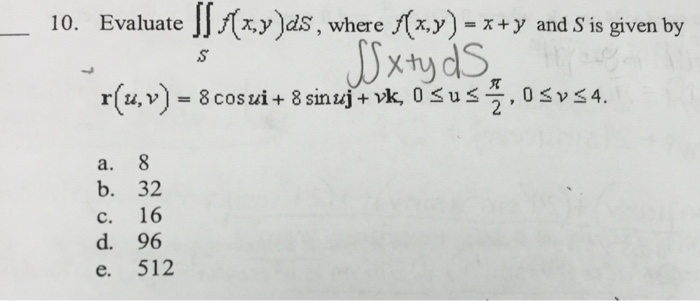 10. Evaluate ∬ f(x,y)dS, where f(x,y) = x+y and S is given by
S
∬x+y dS
r(u,v) = 8 cos ui + 8 sin uj + vk, 0 ≤ u ≤ π/2, 0 ≤ v ≤ 4.
a. 8
b. 32
c. 16
d. 96
e. 512